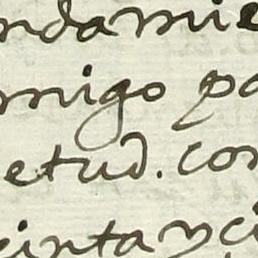 ndamie
migo pa
etud. con
cinta y ci